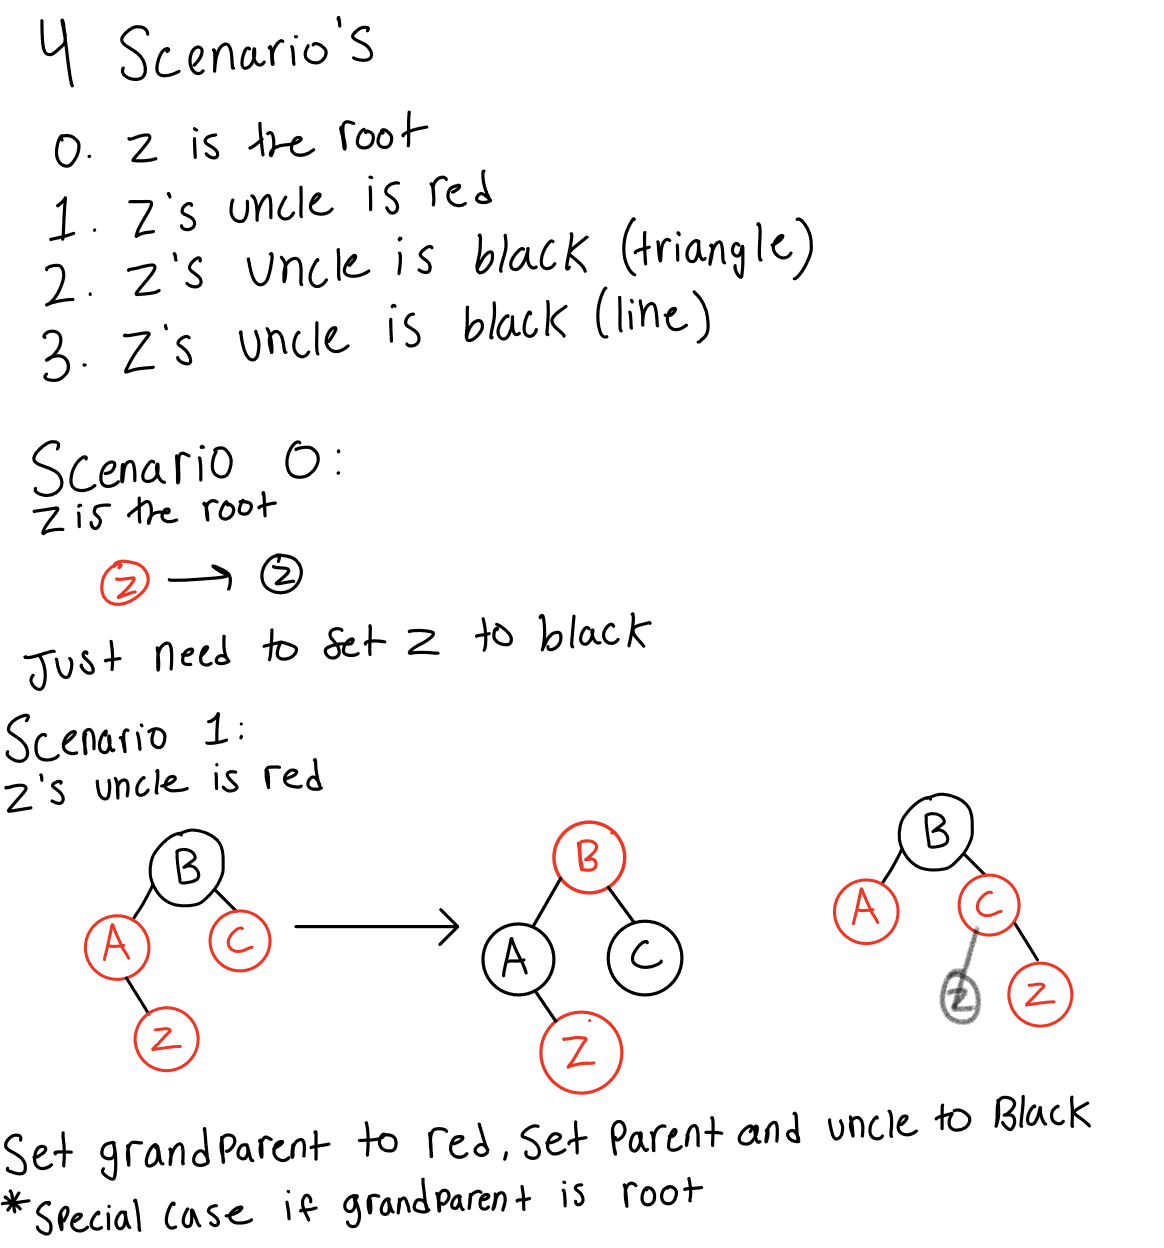 4 Scenario's
0. Z is the root
1. Z's uncle is red
2. Z's uncle is black (triangle)
3. Z's uncle is black (line)
Scenario 0:
Z is the root
Z → Z
Just need to set Z to black
Scenario 1:
Z's uncle is red
B B B
A C A C A C
Z Z Z Z
Set grandparent to red, set parent and uncle to Black
*special case if grandparent is root